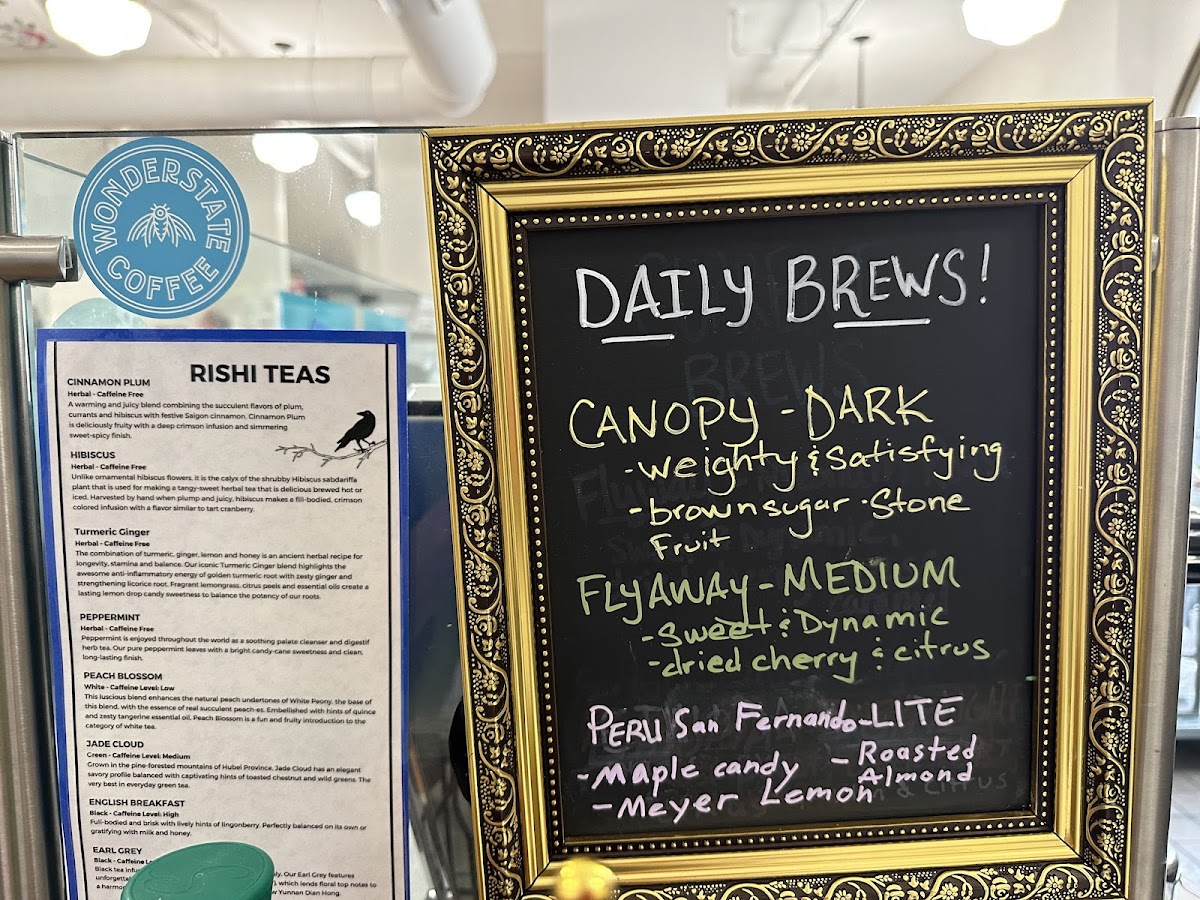 WONDERSTATE
COFFEE
RISHI TEAS
CINNAMON PLUM
Herbal - Caffeine Free
A warming and juicy blend combining the succulent flavors of plum,
currants and hibiscus with festive Saigon cinnamon, Cinnamon Plum
is deliciously fruity with a deep crimson infusion and simmering
sweet-spicy finish.
HIBISCUS
Herbal - Caffeine Free
Unlike ornamental hibiscus flowers, it is the calyx of the shrubby Hibiscus sabdariffa
plant that is used for making a tangy-sweet herbal tea that is delicious brewed hot or
iced. Harvested by hand when plump and juicy, hibiscus makes a full-bodied, crimson
colored infusion with a flavor similar to tart cranberry.
Turmeric Ginger
Herbal - Caffeine Free
The combination of turmeric, ginger, lemon and honey is an ancient herbal recipe for
longevity, stamina and balance. Our iconic Turmeric Ginger blend highlights the
awesome anti-inflammatory energy of golden turmeric root with zesty ginger and
strengthening licorice root. Fragrant lemongrass, citrus peels and essential oils create a
lasting lemon drop candy sweetness to balance the potency of our roots.
PEPPERMINT
Herbal - Caffeine Free
Peppermint is enjoyed throughout the world as a soothing palate cleanser and digestif
herb tea. Our pure peppermint leaves with a bright candy-cane sweetness and clean,
long-lasting finish.
PEACH BLOSSOM
White - Caffeine Level: Low
This luscious blend enhances the natural peach undertones of White Peony, the base of
this blend, with the essence of real succulent peach-es. Embellished with hints of quince
and zesty tangerine essential oil, Peach Blossom is a fun and fruity introduction to the
category of white tea.
JADE CLOUD
Green - Caffeine Level: Medium
Grown in the pine-forested mountains of Hubei Province, Jade Cloud has an elegant
savory profile balanced with captivating hints of toasted chestnut and wild greens. The
very best in everyday green tea.
ENGLISH BREAKFAST
Black - Caffeine Level: High
Full-bodied and brisk with lively hints of lingonberry. Perfectly balanced on its own or
gratifying with milk and honey.
EARL GREY
Black - Caffeine
Black tea
Our Earl Grey features
which lends floral top notes to
a
Yunnan Dian Hong.
DAILY BREWS!
CANOPY - DARK
- weighty & Satisfying
- brown sugar · Stone
Fruit
FLYAWAY - MEDIUM
- Sweet & Dynamic
- dried cherry & citrus
PERU San Fernando - LITE
- Maple candy - Roasted
Almond
- Meyer Lemon